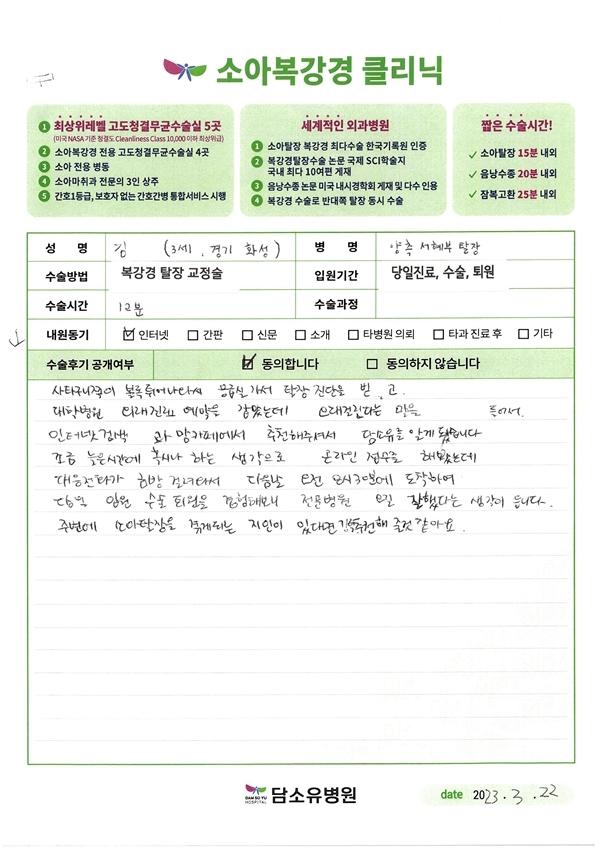 소아복강경 클리닉
1 최상위레벨 고도청결무균수술실 5곳
(미국 NASA 기준 청결도 Cleanliness Class 10,000 이하 최상위급)
2 소아복강경 전용 고도청결무균수술실 4곳
3 소아 전용 병동
4 소아마취과 전문의 3인 상주
5 간호1등급, 보호자 없는 간호간병 통합서비스 시행
세계적인 외과병원
1 소아탈장 복강경 최다수술 한국기록원 인증
2 복강경탈장수술 논문 국제 SCI학술지
국내 최다 10여편 게재
3 음낭수종 논문 미국 내시경학회 게재 및 다수 인용
4 복강경 수술로 반대쪽 탈장 동시 수술
짧은 수술시간!
✓ 소아탈장 15분 내외
✓ 음낭수종 20분 내외
✓ 잠복고환 25분 내외
성 명 김 (3세, 경기 화성) 병 명 양측 서혜부 탈장
수술방법 복강경 탈장 교정술 입원기간 당일진료, 수술, 퇴원
수술시간 12분 수술과정
내원동기 ☑ 인터넷 □ 간판 □ 신문 □ 소개 □ 타병원 의뢰 □ 타과 진료 후 □ 기타
수술후기 공개여부 ☑ 동의합니다 □ 동의하지 않습니다
볼록 튀어나와서 응급실 가서 탈장 진단을 받고.
대학병원 외래진료 예약을 잡았는데 오래걸린다는 말을 듣어서.
인터넷 검색 과 맘카페에서 추천해주셔서 담소유를 알게 됐습니다
조금 늦은시간에 혹시나 하는 생각으로 온라인 접수를 해봤는데
다음날 오전 8시30분에 도착하여
입원 수술 퇴원을 경험해보니 전문병원 오길 잘했다는 생각이 듭니다.
주변에 소아탈장을 겪게되는 지인이 있다면 강추천해 줄것 같아요.
DAM SO YU
HOSPITAL 담소유병원
date 2023. 3. 22